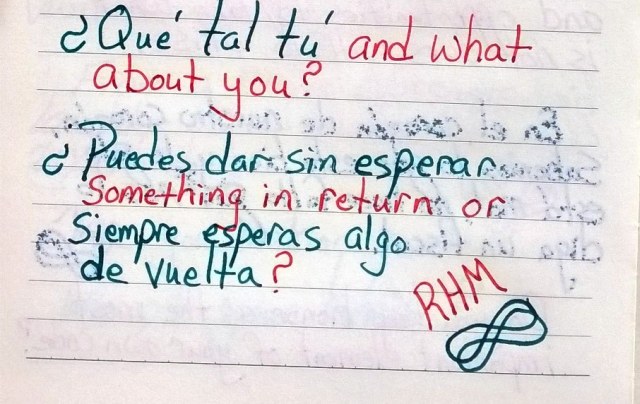 ¿Qué tal tú and what
about you?
¿Puedes dar sin esperar
Something in return or
Siempre esperas algo
de vuelta?
RHM